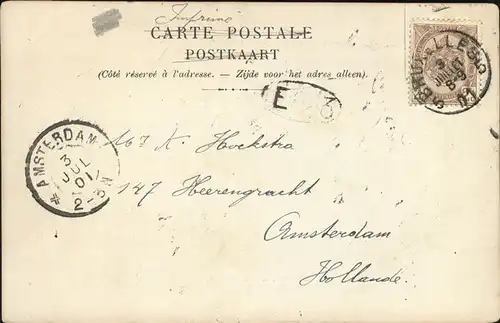 Imprimé
CARTE POSTALE
POSTKAART
(Côté réservé à l'adresse. - Zijde voor het adres alleen.)
BRUXELLES
3
JUIL
01
E
AMSTERDAM
3
JUL
01
2-3N
4
167 K. Hoekstra
127 Heerengracht
Amsterdam
Hollande.